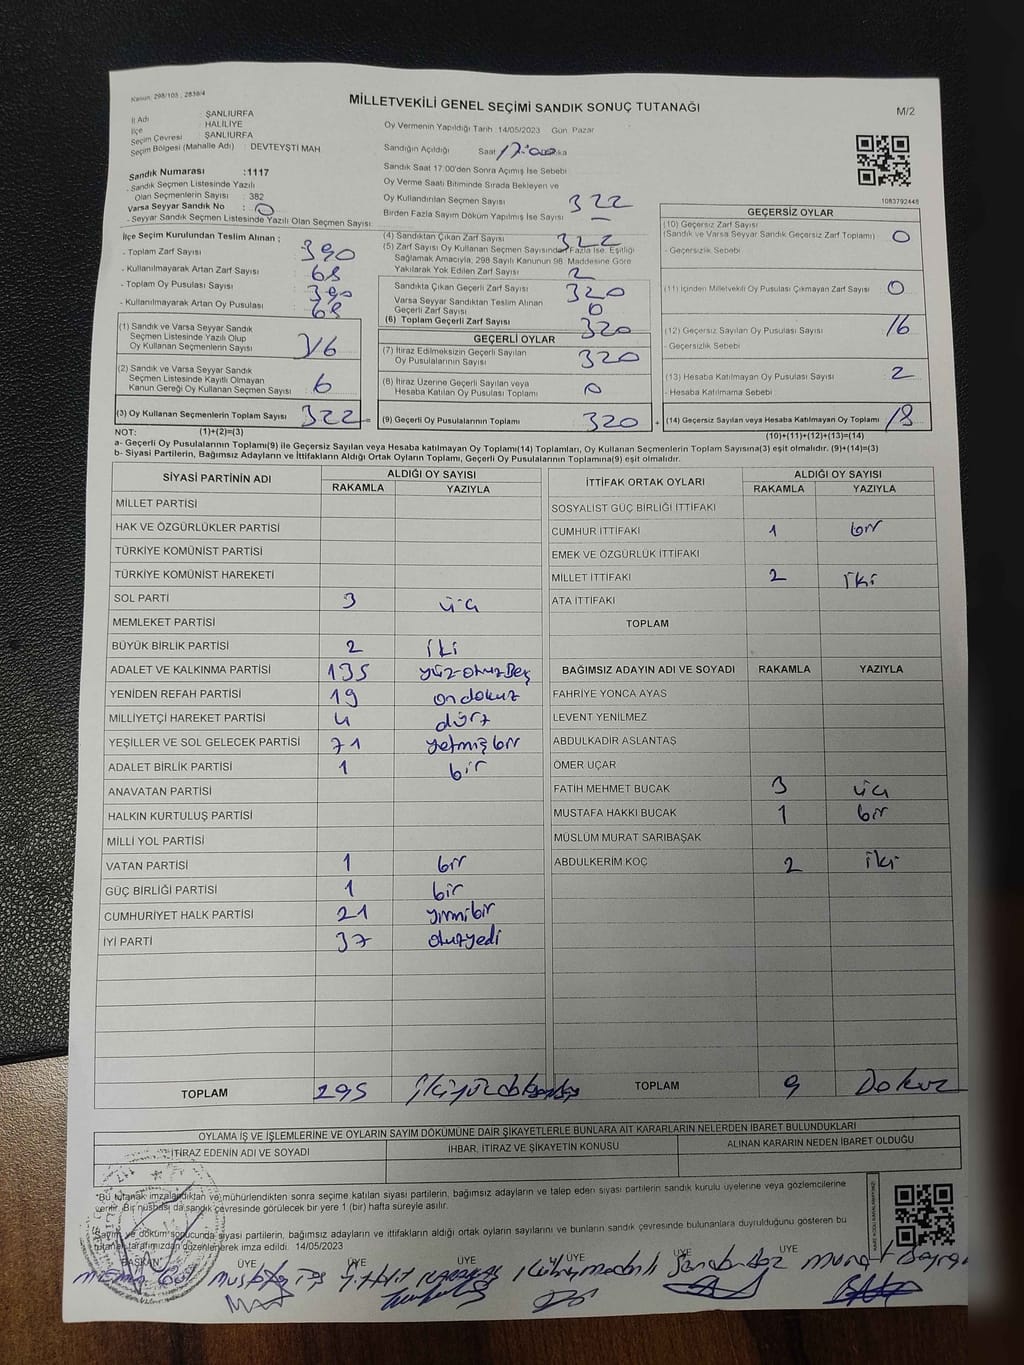 Kanun: 298/105 ; 2839/4
MİLLETVEKİLİ GENEL SEÇİMİ SANDIK SONUÇ TUTANAĞI
M/2
İl Adı : ŞANLIURFA
İlçe : HALİLİYE
Seçim Çevresi : ŞANLIURFA
Seçim Bölgesi (Mahalle Adı) : DEVTEYŞTİ MAH
Sandık Numarası :1117
- Sandık Seçmen Listesinde Yazılı
Olan Seçmenlerin Sayısı : 382
Varsa Seyyar Sandık No : 0
- Seyyar Sandık Seçmen Listesinde Yazılı Olan Seçmen Sayısı:
Oy Vermenin Yapıldığı Tarih :14/05/2023 Gün: Pazar
Sandığın Açıldığı Saat 17:00
Sandık Saat 17:00'den Sonra Açımış İse Sebebi
Oy Verme Saati Bitiminde Sırada Bekleyen ve
Oy Kullandırılan Seçmen Sayısı 322
Birden Fazla Sayım Döküm Yapılmış İse Sayısı —
1083792448
İlçe Seçim Kurulundan Teslim Alınan ;
- Toplam Zarf Sayısı : 390
- Kullanılmayarak Artan Zarf Sayısı : 68
- Toplam Oy Pusulası Sayısı : 390
- Kullanılmayarak Artan Oy Pusulası : 68
(1) Sandık ve Varsa Seyyar Sandık
Seçmen Listesinde Yazılı Olup
Oy Kullanan Seçmenlerin Sayısı : 316
(2) Sandık ve Varsa Seyyar Sandık
Seçmen Listesinde Kayıtlı Olmayan
Kanun Gereği Oy Kullanan Seçmen Sayısı : 6
(3) Oy Kullanan Seçmenlerin Toplam Sayısı : 322
(4) Sandıktan Çıkan Zarf Sayısı 322
(5) Zarf Sayısı Oy Kullanan Seçmen Sayısından Fazla İse, Eşitliği
Sağlamak Amacıyla, 298 Sayılı Kanunun 98. Maddesine Göre
Yakılarak Yok Edilen Zarf Sayısı : 2
Sandıkta Çıkan Geçerli Zarf Sayısı : 320
Varsa Seyyar Sandıktan Teslim Alınan
Geçerli Zarf Sayısı : 0
(6) Toplam Geçerli Zarf Sayısı : 320
GEÇERLİ OYLAR
(7) İtiraz Edilmeksizin Geçerli Sayılan
Oy Pusulalarının Sayısı : 320
(8) İtiraz Üzerine Geçerli Sayılan veya
Hesaba Katılan Oy Pusulaları Toplamı : 0
(9) Geçerli Oy Pusulalarının Toplamı : 320
GEÇERSİZ OYLAR
(10) Geçersiz Zarf Sayısı
(Sandık ve Varsa Seyyar Sandık Geçersiz Zarf Toplamı) : 0
- Geçersizlik Sebebi :
(11) İçinden Milletvekili Oy Pusulası Çıkmayan Zarf Sayısı : 0
(12) Geçersiz Sayılan Oy Pusulası Sayısı : 16
- Geçersizlik Sebebi :
(13) Hesaba Katılmayan Oy Pusulası Sayısı : 2
- Hesaba Katılmama Sebebi :
(14) Geçersiz Sayılan veya Hesaba Katılmayan Oy Toplamı : 18
NOT: (1)+(2)=(3)
(10)+(11)+(12)+(13)=(14)
a- Geçerli Oy Pusulalarının Toplamı(9) ile Geçersiz Sayılan veya Hesaba katılmayan Oy Toplamı(14) Toplamları, Oy Kullanan Seçmenlerin Toplam Sayısına(3) eşit olmalıdır. (9)+(14)=(3)
b- Siyasi Partilerin, Bağımsız Adayların ve İttifakların Aldığı Ortak Oyların Toplamı, Geçerli Oy Pusulalarının Toplamına(9) eşit olmalıdır.
SİYASİ PARTİNİN ADI ALDIĞI OY SAYISI
RAKAMLA YAZIYLA
MİLLET PARTİSİ
HAK VE ÖZGÜRLÜKLER PARTİSİ
TÜRKİYE KOMÜNİST PARTİSİ
TÜRKİYE KOMÜNİST HAREKETİ
SOL PARTİ 3 üç
MEMLEKET PARTİSİ
BÜYÜK BİRLİK PARTİSİ 2 iki
ADALET VE KALKINMA PARTİSİ 135 yüz-otuzBeş
YENİDEN REFAH PARTİSİ 19 ondokuz
MİLLİYETÇİ HAREKET PARTİSİ 4 dört
YEŞİLLER VE SOL GELECEK PARTİSİ 71 yetmiş bir
ADALET BİRLİK PARTİSİ 1 bir
ANAVATAN PARTİSİ
HALKIN KURTULUŞ PARTİSİ
MİLLİ YOL PARTİSİ
VATAN PARTİSİ 1 bir
GÜÇ BİRLİĞİ PARTİSİ 1 bir
CUMHURİYET HALK PARTİSİ 21 yirmibir
İYİ PARTİ 37 otuzyedi
TOPLAM 295 ikiyüzdoksanbeş
İTTİFAK ORTAK OYLARI ALDIĞI OY SAYISI
RAKAMLA YAZIYLA
SOSYALİST GÜÇ BİRLİĞİ İTTİFAKI
CUMHUR İTTİFAKI 1 bir
EMEK VE ÖZGÜRLÜK İTTİFAKI
MİLLET İTTİFAKI 2 iki
ATA İTTİFAKI
TOPLAM
BAĞIMSIZ ADAYIN ADI VE SOYADI RAKAMLA YAZIYLA
FAHRİYE YONCA AYAS
LEVENT YENİLMEZ
ABDULKADİR ASLANTAŞ
ÖMER UÇAR
FATİH MEHMET BUCAK 3 üç
MUSTAFA HAKKI BUCAK 1 bir
MÜSLÜM MURAT SARIBAŞAK
ABDULKERİM KOÇ 2 iki
TOPLAM 9 Dokuz
OYLAMA İŞ VE İŞLEMLERİNE VE OYLARIN SAYIM DÖKÜMÜNE DAİR ŞİKAYETLERLE BUNLARA AİT KARARLARIN NELERDEN İBARET BULUNDUKLARI
İTİRAZ EDENİN ADI VE SOYADI İHBAR, İTİRAZ VE ŞİKAYETİN KONUSU ALINAN KARARIN NEDEN İBARET OLDUĞU
"Bu tutanak imzalandıktan ve mühürlendikten sonra seçime katılan siyasi partilerin, bağımsız adayların ve talep eden siyasi partilerin sandık kurulu üyelerine veya gözlemcilerine
verilir. Bir nüshası da sandık çevresinde görülecek bir yere 1 (bir) hafta süreyle asılır.
Sayım ve döküm sonucunda siyasi partilerin, bağımsız adayların ve ittifakların aldığı ortak oyların sayılarını ve bunların sandık çevresinde bulunanlara duyrulduğunu gösteren bu
tutanak tarafımızdan düzenlenerek imza edildi. 14/05/2023
BAŞKAN ÜYE ÜYE ÜYE ÜYE ÜYE